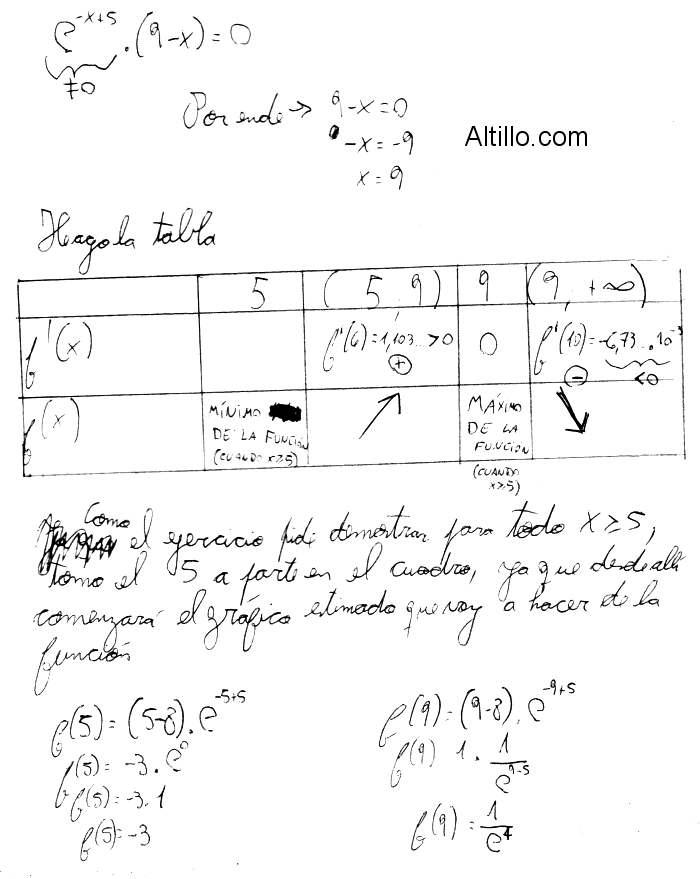 e^{-x+5} . (9-x) = 0
≠0
Por ende → 9-x=0
-x = -9
Altillo.com
x = 9
Hago la tabla
5 (5, 9) 9 (9, +∞)
f'(x) f'(6)=1,103... >0 0 f'(10)=-6,73...10^{-3}
+ - <0
f(x) MÍNIMO DE LA FUNCIÓN (CUANDO x≥5) ↗ MÁXIMO DE LA FUNCIÓN (CUANDO x≥5) ↘
Como el ejercicio pide demostrar para todo x ≥ 5,
tomo el 5 a parte en el cuadro, ya que desde allí
comenzará el gráfico estimado que voy a hacer de la
función
f(5) = (5-8) . e^{-5+5}
f(5) = -3 . e^0
f(5) = -3 . 1
f(5) = -3
f(9) = (9-8) . e^{-9+5}
f(9) 1 . 1/e^{9-5}
f(9) = 1/e^4